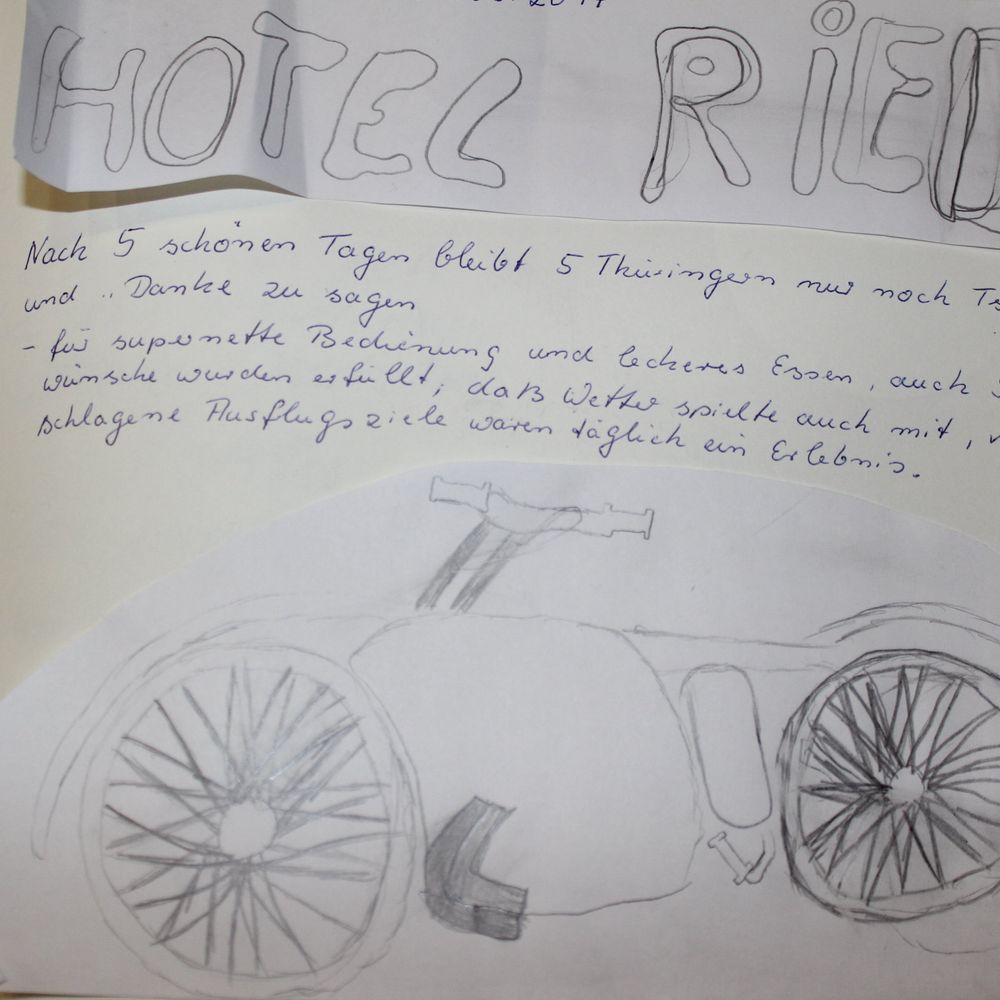 2017
HOTEL RIED
Nach 5 schönen Tagen bleibt 5 Thüringern nur noch
und "Danke zu sagen
- für supernette Bedienung und leckeres Essen, auch
wünsche wurden erfüllt, daß Wetter spielte auch mit,
schlagene Ausflugsziele waren täglich ein Erlebnis.